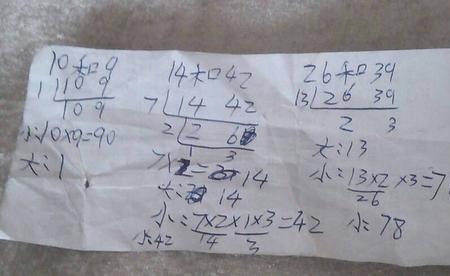 10和9
1 10 9
10 9
小:10×9=90
大:1
14和42
7 14 42
2 2 6
1 3
7×2=14
大:14
小:7×2×1×3=42
14 3
小:42
26和39
13 26 39
2 3
大:13
小:13×2×3=7
26
小:78